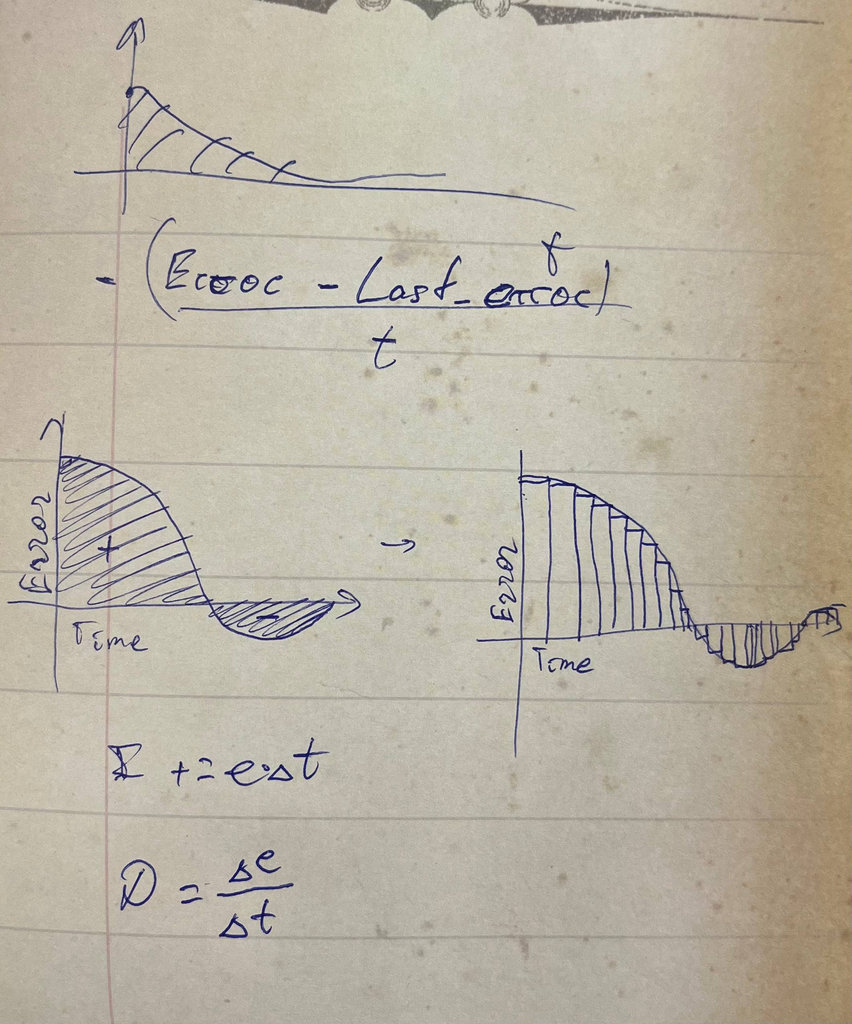 t
- (Error - Last_error)
t
Error
+
-
Time
→
Error
Time
I += e·Δt
D = Δe
Δt